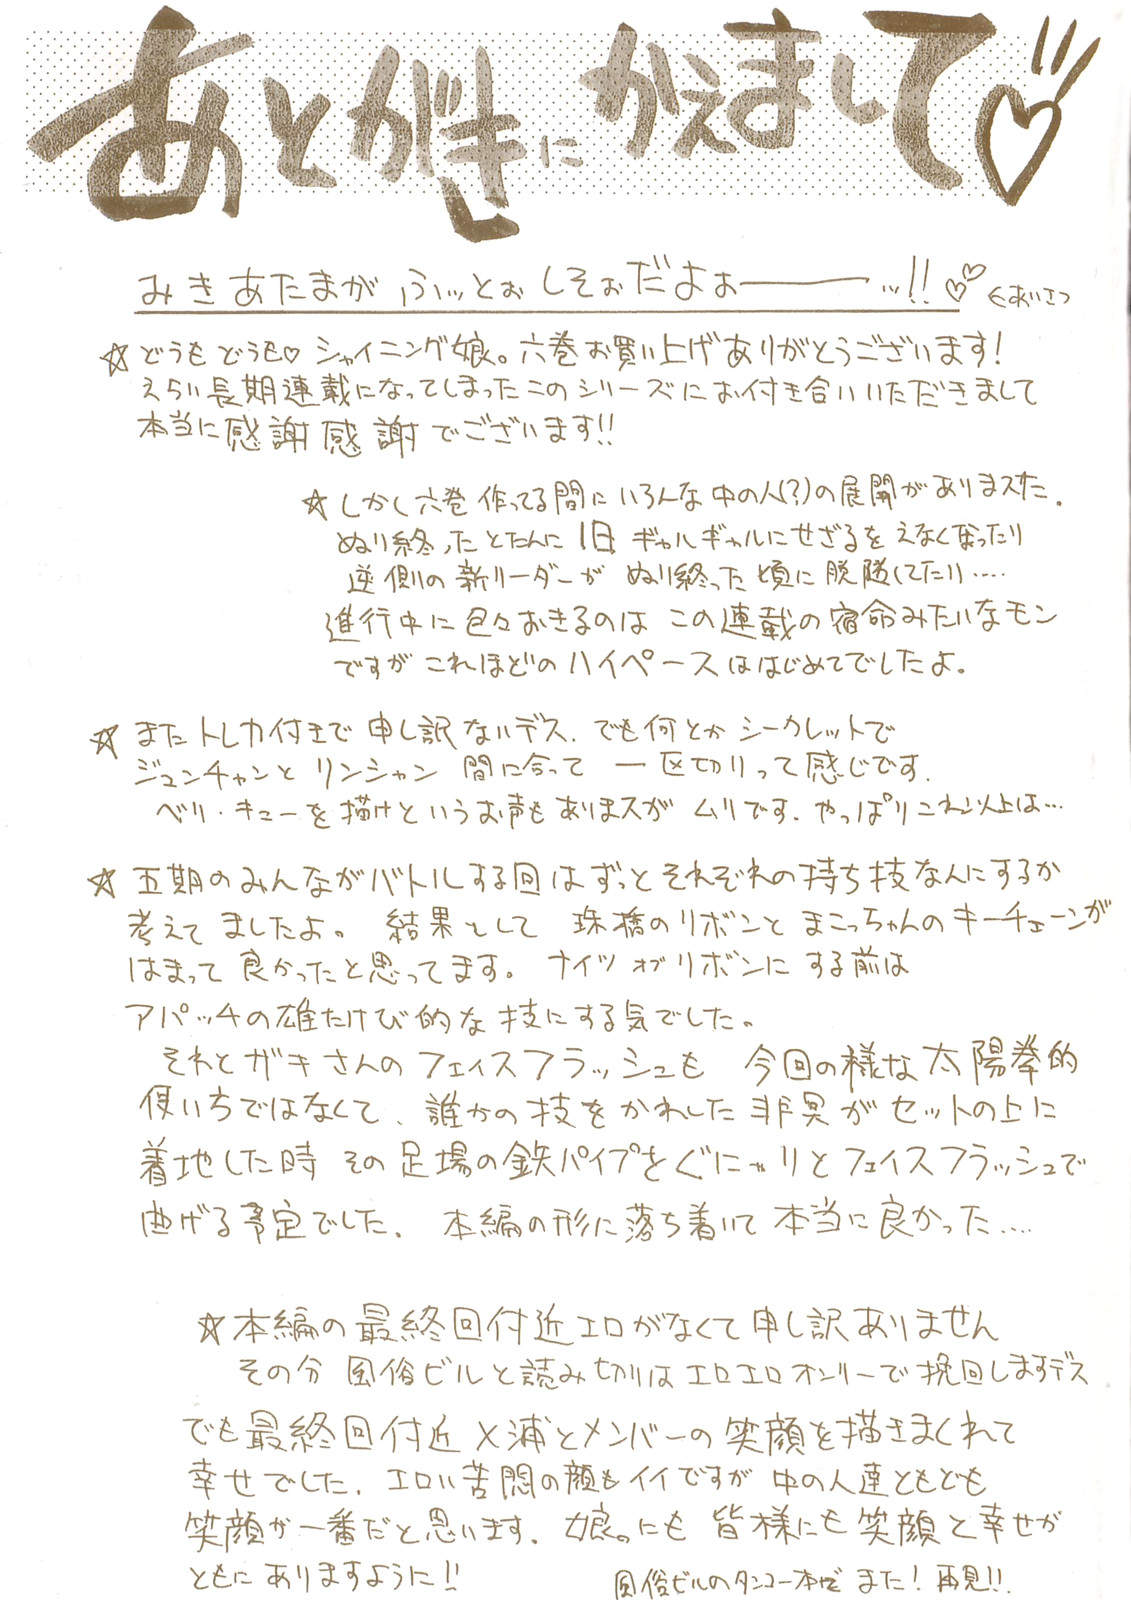 あとがきにかえまして♡
みきあたまがふぃっとぉしそぉだよぉー…!!♡♡ ←あいさつ
☆どうもどうも♡シャイニング娘。六巻お買い上げありがとうございます!
えらい長期連載になってしまったこのシリーズにお付き合いいただきまして
本当に感謝感謝でございます!!
☆しかし六巻作ってる間にいろんな中の人(?)の展開がありまスた.
ぬり終ったとたんに1日ギャルギャルにせざるをえなくなったり
逆側の新リーダーがぬり終った頃に脱隊してたり….
進行中に色々おきるのはこの連載の宿命みたいなモン
ですがこれほどのハイペースははじめてでしたよ。
☆またトレカ付きで申し訳ないデス.でも何とかシークレットで
ジュンチャンとリンシャン間に合って一区切りって感じです.
ベリ・キューを描けというお声もありまスがムリです.やっぱりこれ以上は…
☆五期のみんながバトルする回はずっとそれぞれの持ち技なんにするか
考えてましたよ。結果として珠橋のリボンとまこっちゃんのキーチェーンが
はまって良かったと思ってます。ナイツオブリボンにする前は
アパッチの雄たけび的な技にする気でした。
それとガキさんのフェイスフラッシュも今回の様な太陽拳的
使いちではなくて、誰かの技をかわした非異がセットの上に
着地した時その足場の鉄パイプをぐにゃりとフェイスフラッシュで
曲げる予定でした.本編の形に落ち着いて本当に良かった….
☆本編の最終回付近エロがなくて申し訳ありません
その分風俗ビルと読み切りはエロエロオンリーで挽回しますデス
でも最終回付近×浦とメンバーの笑顔を描きまくれて
幸せでした.エロい苦悶の顔もイイですが中の人達ともども
笑顔が一番だと思います.娘。にも皆様にも笑顔と幸せが
ともにありますように!!
風俗ビルのタンコー本でまた!再見!!.